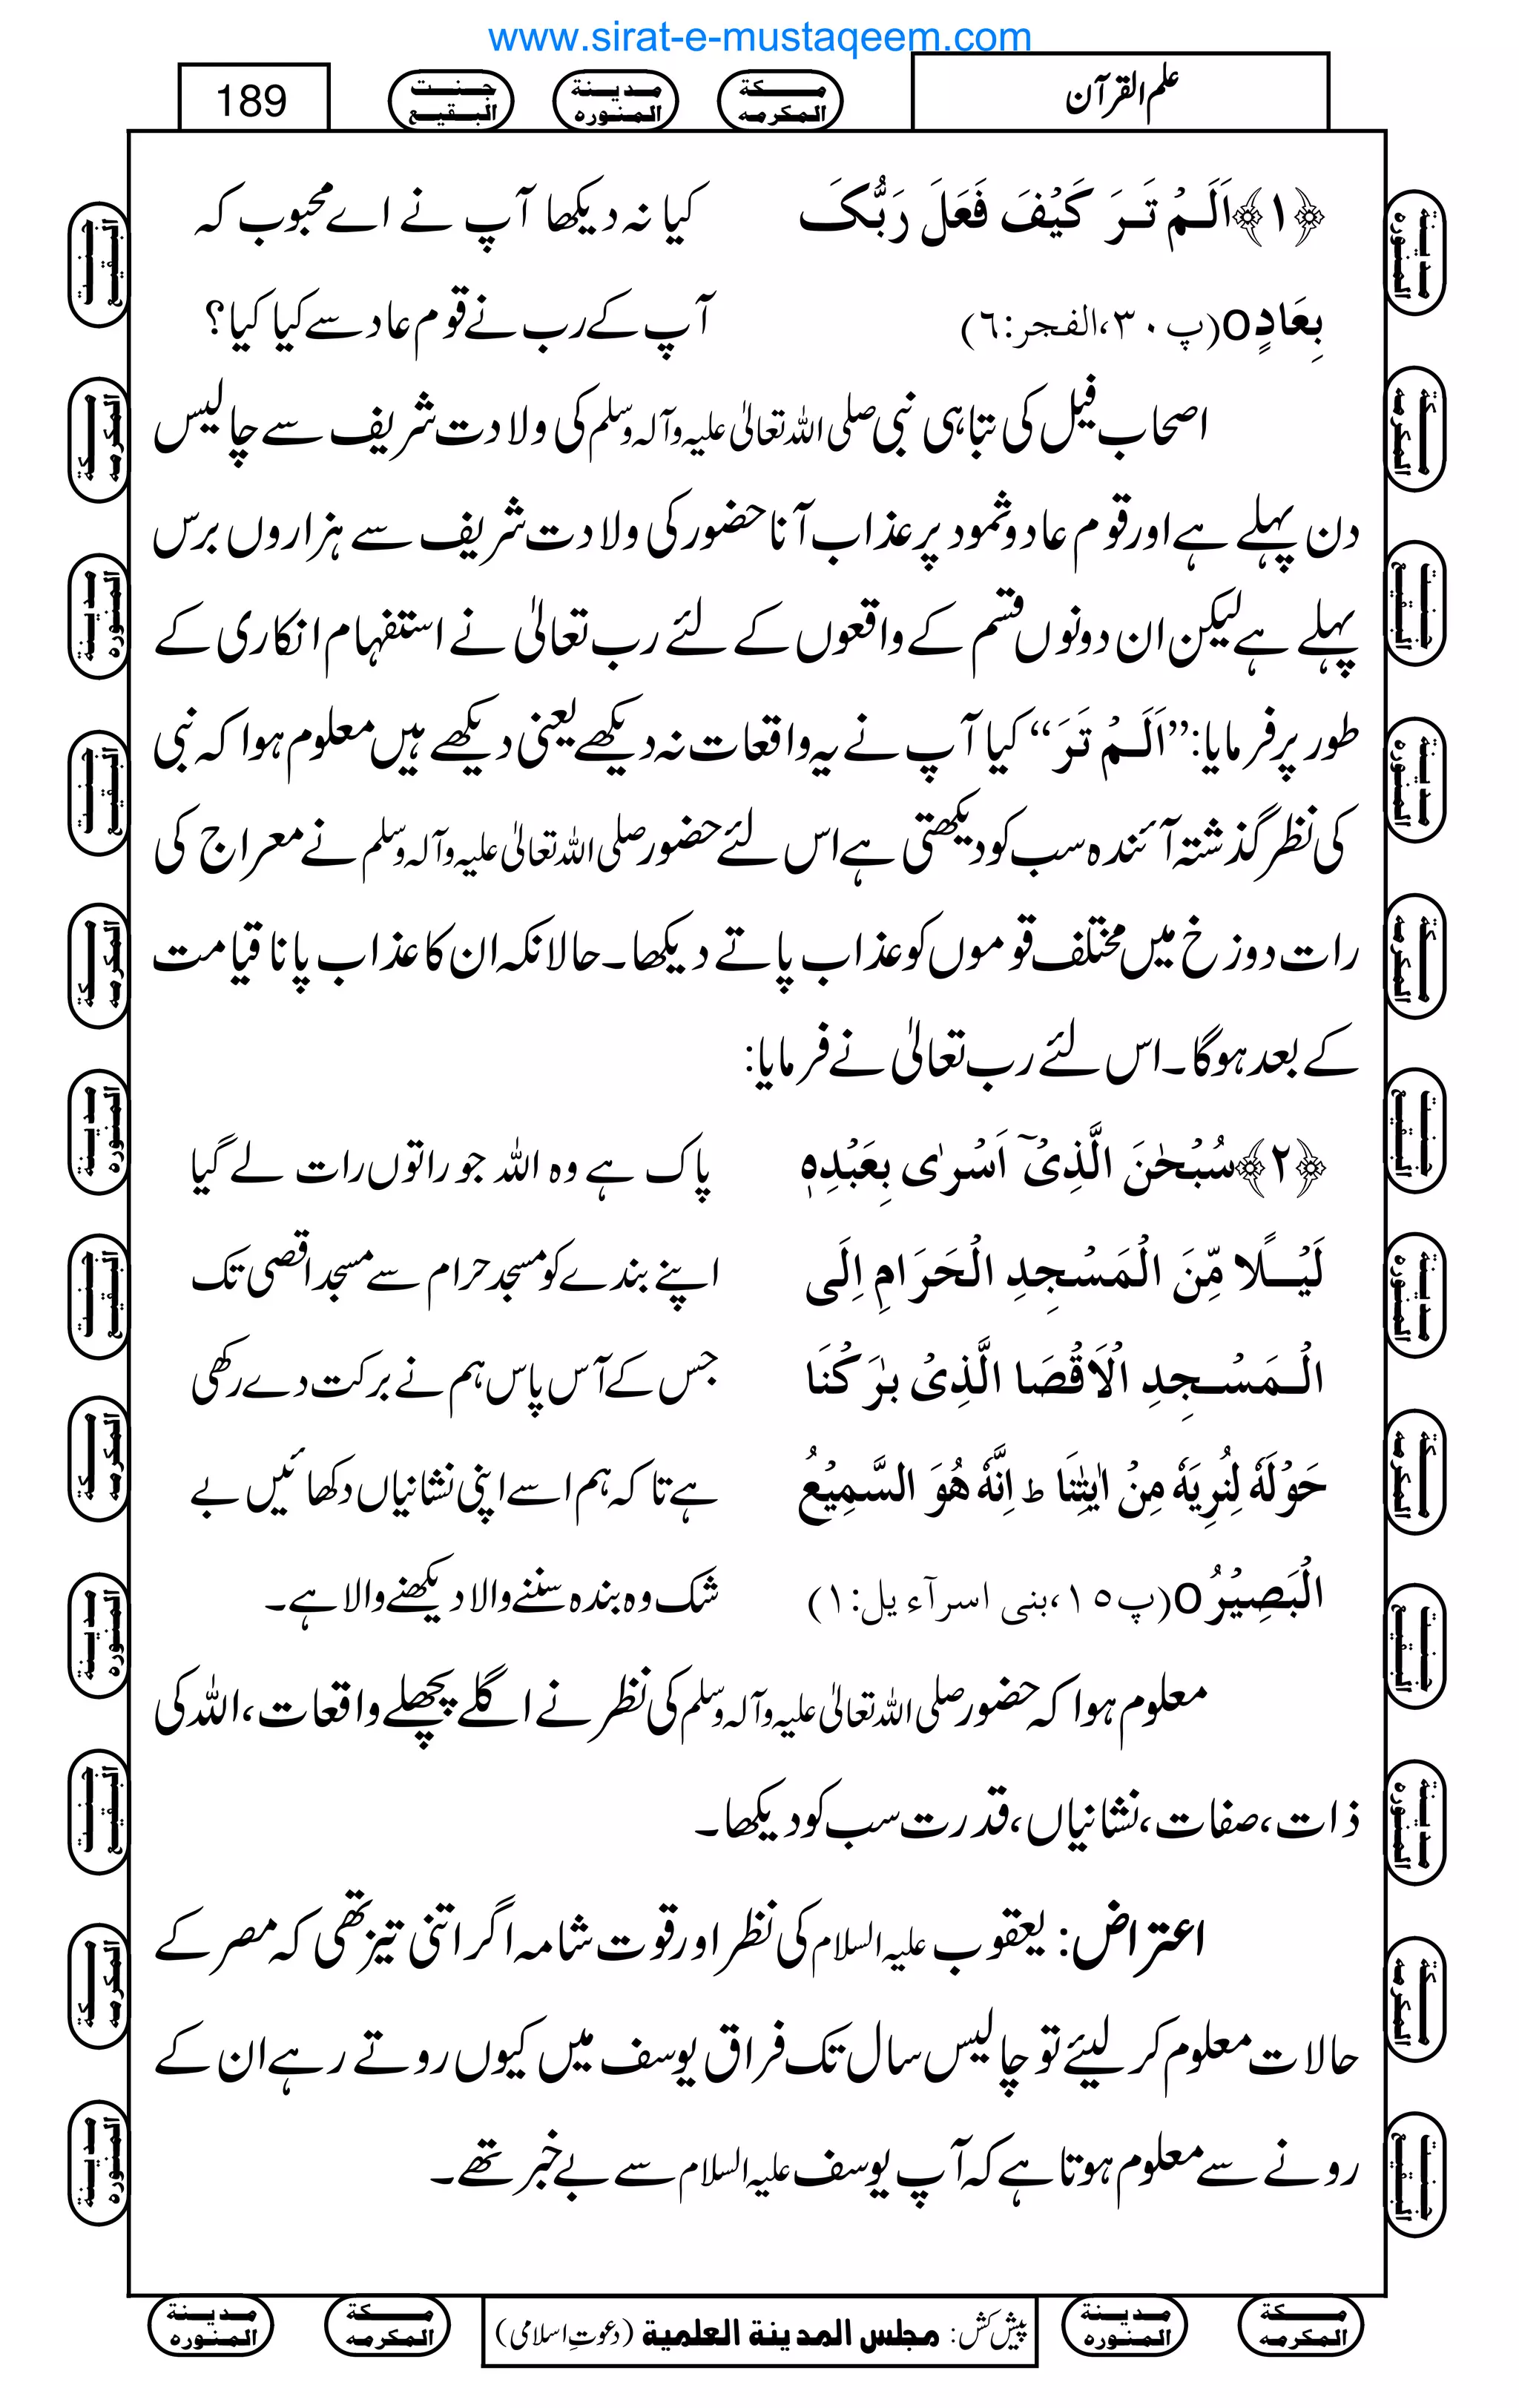 www.sirat-e-mustaqeem.com
علم القرآن
مــكة المكرمه
مـديـنة المنـوره
جـنـت البـقيـع
189
﴿۱﴾اَلَمْ تَرَ کَیْفَ فَعَلَ رَبُّکَ
کیا نہ دیکھا آپ نے اے محبوب کہ
بِعَادٍO(پ۳۰،الفجر:٦)
آپ کے رب نے قوم عاد سے کیا کیا؟
اصحاب فیل کی تباہی نبی صلی اللہ تعالیٰ علیہ وآلہ وسلم کی ولادت شریف سے چالیس
دن پہلے ہے اور قوم عاد وثمود پر عذاب آنا حضور کی ولادت شریف سے ہزاروں برس
پہلے ہے لیکن ان دونوں قسم کے واقعوں کے لئے رب تعالیٰ نے استفہام انکاری کے
طور پر فرمایا: ”اَلَمْ تَرَ“ کیا آپ نے یہ واقعات نہ دیکھے یعنی دیکھے ہیں معلوم ہوا کہ نبی
کی نظر گذشتہ آئندہ سب کو دیکھتی ہے اس لئے حضور صلی اللہ تعالیٰ علیہ وآلہ وسلم نے معراج کی
رات دوزخ میں مختلف قوموں کو عذاب پاتے دیکھا۔ حالانکہ ان کا عذاب پانا قیامت
کے بعد ہوگا۔ اس لئے رب تعالیٰ نے فرمایا:
﴿۲﴾سُبْحٰنَ الَّذِیْۤ اَسْرٰی بِعَبْدِہٖ
پاک ہے وہ اللہ جو راتوں رات لے گیا
لَیْلًا مِّنَ الْمَسْجِدِ الْحَرَامِ اِلَی
اپنے بندے کو مسجد حرام سے مسجد اقصی تک
الْمَسْجِدِ الْاَقْصَا الَّذِیْ بٰرَکْنَا
جس کے آس پاس ہم نے برکت دے رکھی
حَوْلَہٗ لِنُرِیَہٗ مِنْ اٰیٰتِنَا ط اِنَّہٗ ھُوَ السَّمِیْعُ
ہے تاکہ ہم اسے اپنی نشانیاں دکھائیں بے
الْبَصِیْرُO(پ۱٥،بنی اسرآء یل:۱)
شک وہ بندہ سننے والا دیکھنے والا ہے۔
معلوم ہوا کہ حضور صلی اللہ تعالیٰ علیہ وآلہ وسلم کی نظر نے اگلے پچھلے واقعات، اللہ کی
ذات، صفات، نشانیاں، قدرت سب کو دیکھا۔
اعتراض: یعقوب علیہ السلام کی نظر اور قوت شامہ اگر اتنی تیز تھی کہ مصر کے
حالات معلوم کر لیئے تو چالیس سال تک فراق یوسف میں کیوں روتے رہے ان کے
رونے سے معلوم ہوتا ہے کہ آپ یوسف علیہ السلام سے بے خبر تھے۔
مــكة المكرمه
مـديـنة المنـوره
پیش کش: مجلس المدينة العلمية (دعوتِ اسلامی)
مــكة المكرمه
مـديـنة المنـوره